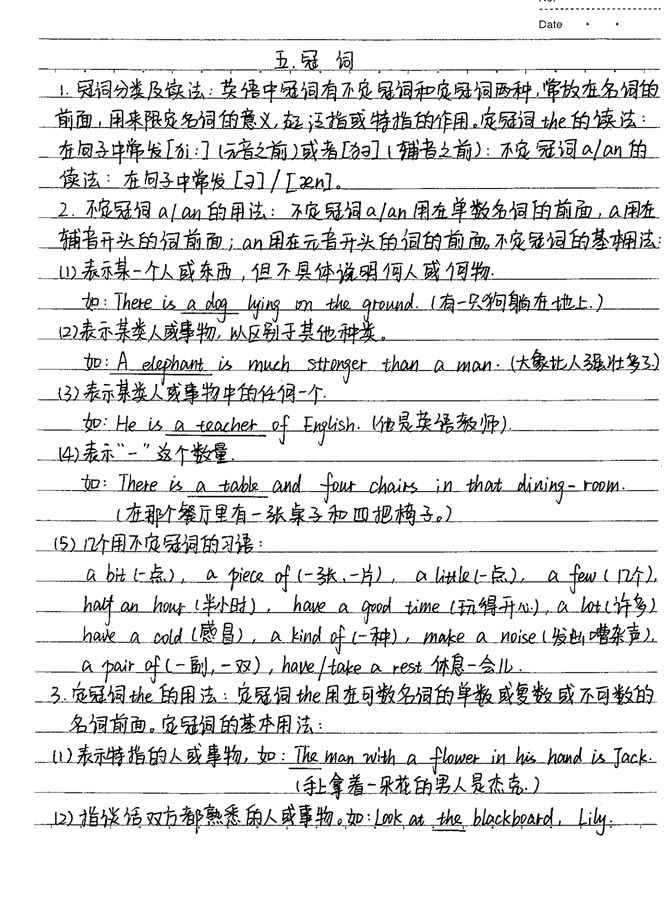 Date · ·
五.冠 词
1.冠词分类及读法:英语中冠词有不定冠词和定冠词两种,常放在名词的
前面,用来限定名词的意义,起泛指或特指的作用。定冠词the的读法:
在句子中常发[ði:](元音之前)或者[ðə](辅音之前):不定冠词a/an的
读法:在句子中常发[ə]/[æn]。
2.不定冠词a/an的用法:不定冠词a/an用在单数名词的前面,a用在
辅音开头的词前面;an用在元音开头的词的前面。不定冠词的基本用法:
(1)表示某一个人或东西,但不具体说明何人或何物.
如:There is a dog lying on the ground.(有一只狗躺在地上.)
(2)表示某类人或事物,以区别于其他种类。
如:A elephant is much stronger than a man.(大象比人强壮多了.)
(3)表示某类人或事物中的任何一个.
如:He is a teacher of English.(他是英语教师).
(4)表示“一”这个数量.
如:There is a table and four chairs in that dining-room.
(在那个餐厅里有一张桌子和四把椅子。)
(5)几个用不定冠词的习语:
a bit(一点), a piece of(一张、一片), a little(一点), a few(几个),
half an hour(半小时), have a good time(玩得开心), a lot(许多)
have a cold(感冒), a kind of(一种), make a noise(发出嘈杂声),
a pair of(一副,一双), have/take a rest 休息一会儿.
3.定冠词the的用法:定冠词the用在可数名词的单数或复数或不可数的
名词前面。定冠词的基本用法:
(1)表示特指的人或事物,如:The man with a flower in his hand is Jack.
(手上拿着一朵花的男人是杰克.)
(2)指谈话双方都熟悉的人或事物。如:Look at the blackboard, Lily.